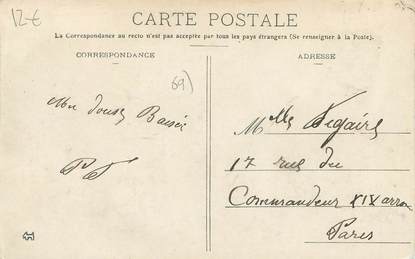 12-€
CARTE POSTALE
La Correspondance au recto n'est pas acceptée par tous les pays étrangers (Se renseigner à la Poste).
CORRESPONDANCE
ADRESSE
69)
doux Baiser
Mlle
17 rue du
Commandeur XIX arron
Paris